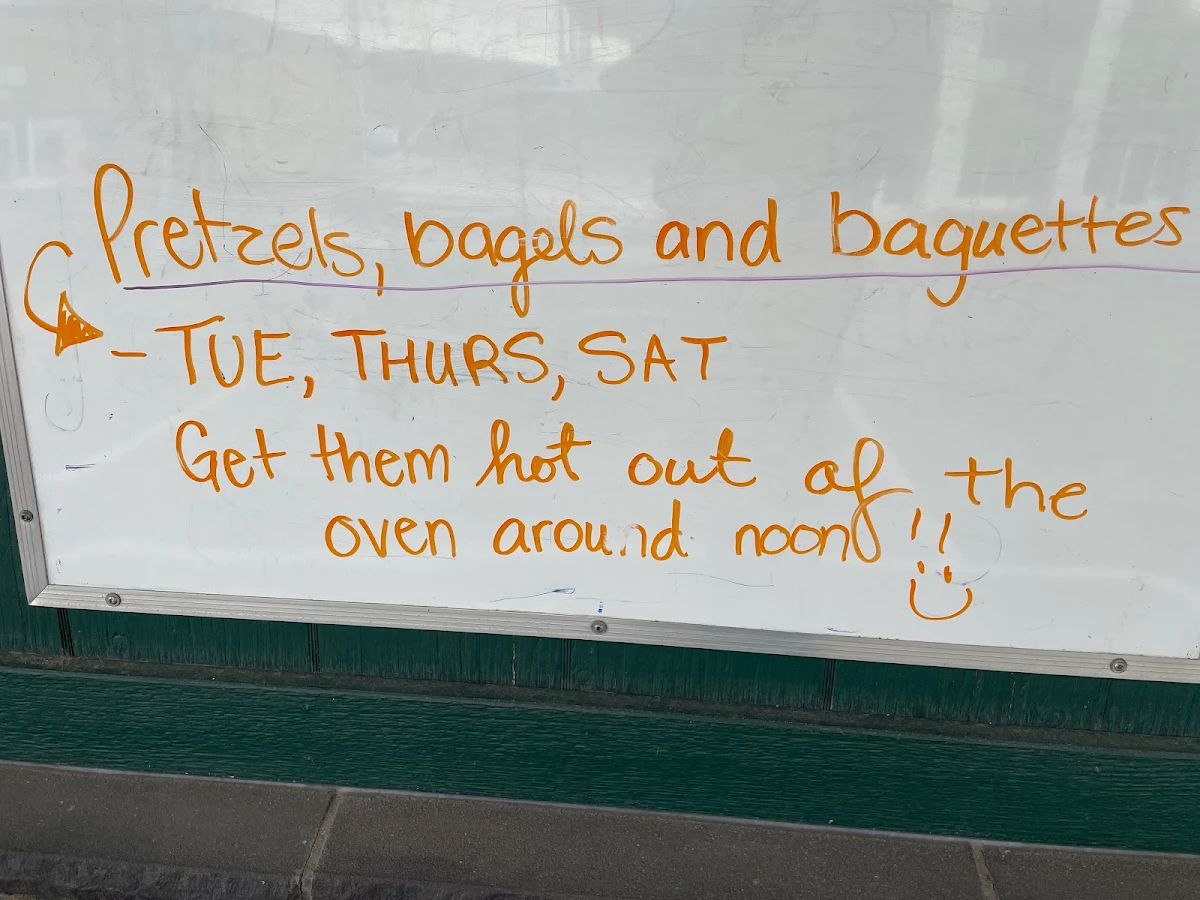 Pretzels, bagels and baguettes
- TUE, THURS, SAT
Get them hot out of the
oven around noon!!